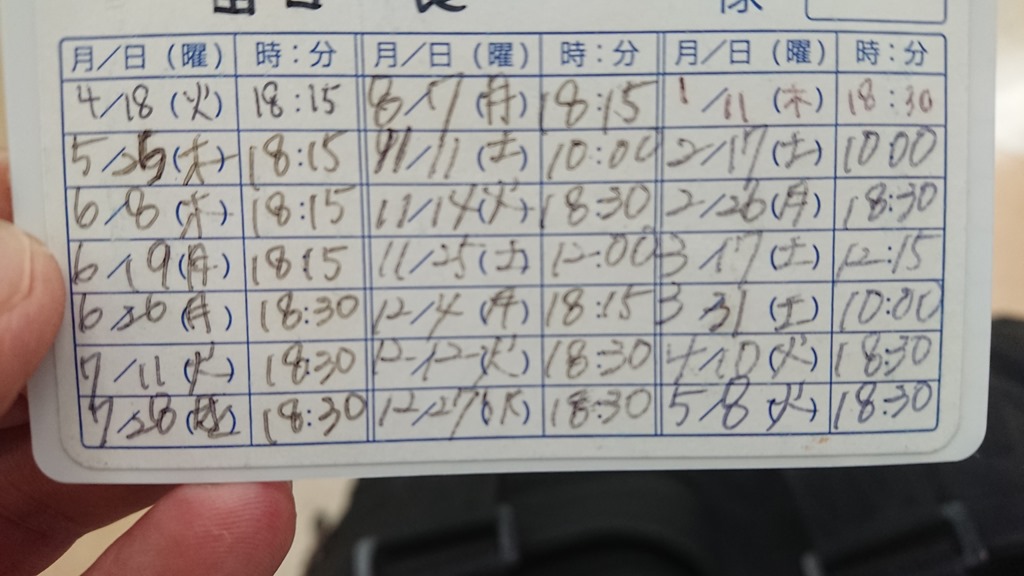 様
月/日(曜) 時:分 月/日(曜) 時:分 月/日(曜) 時:分
4/18(火) 18:15 8/7(月) 18:15 1/11(木) 18:30
5/25(木) 18:15 11/11(土) 10:00 2/17(土) 10 00
6/8(木) 18:15 11/14(火) 18:30 2/26(月) 18:30
6/19(月) 18:15 11/25(土) 12:00 3/17(土) 12:15
6/26(月) 18:30 12/4(月) 18:15 3/31(土) 10:00
7/11(火) 18:30 12/12(火) 18:30 4/10(火) 18:30
7/28(金) 18:30 12/27(水) 18:30 5/8(火) 18:30